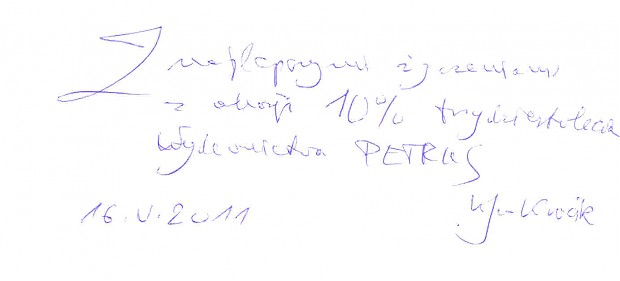 Z najlepszymi życzeniami
z okazji 10% trzydziestolecia
Wydawnictwa PETRUS
16.V.2011